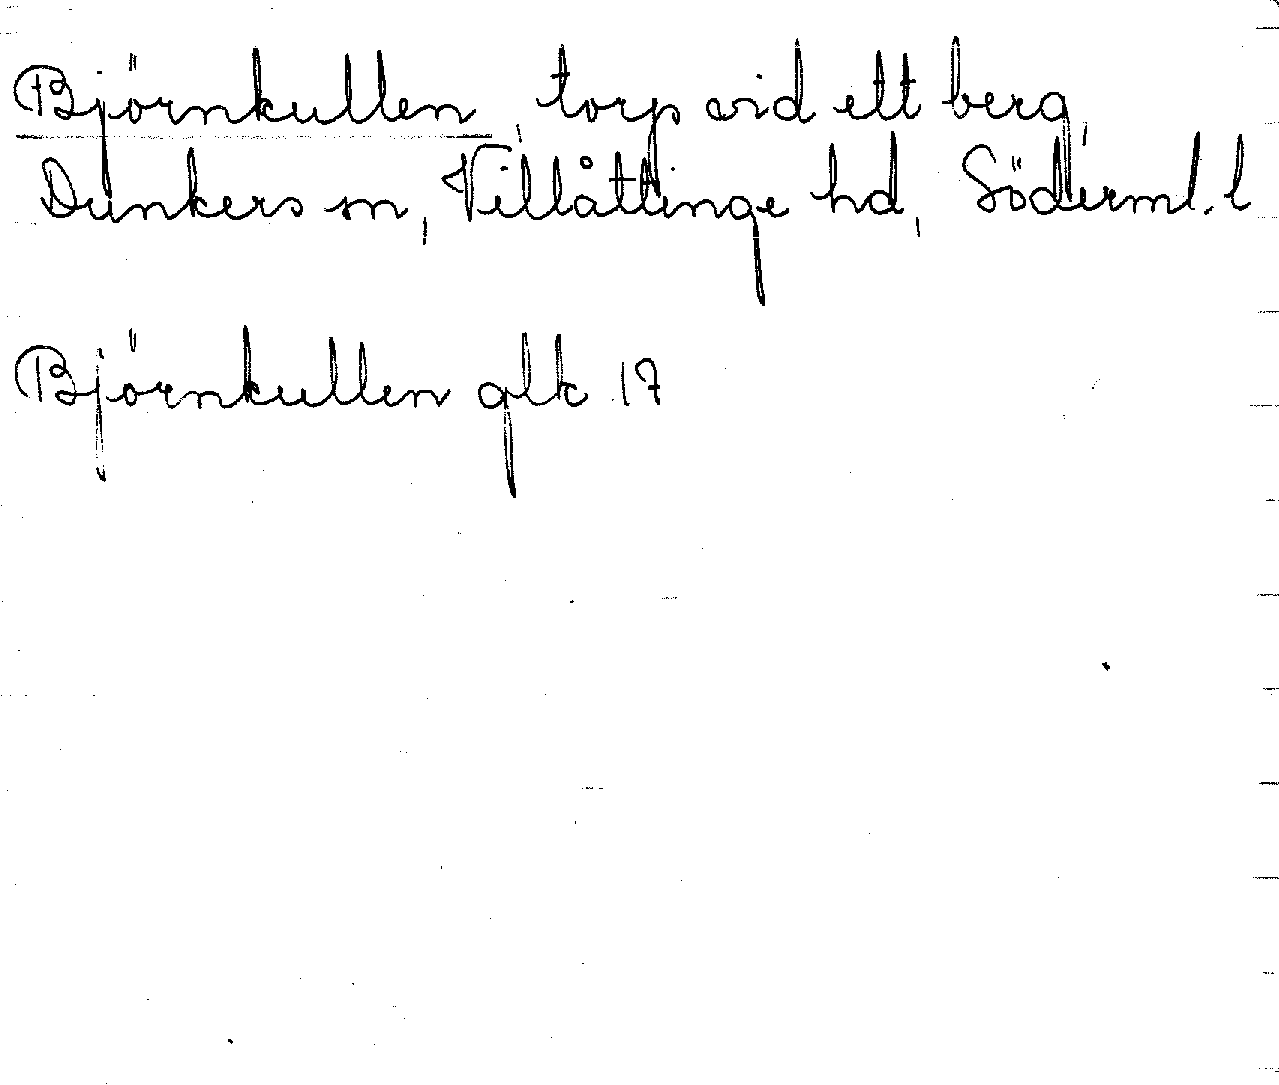 Björnkullen, torp vid ett berg,
Dunkers sn, Villåttinge hd, Söderml. l
Björnkullen glk 17